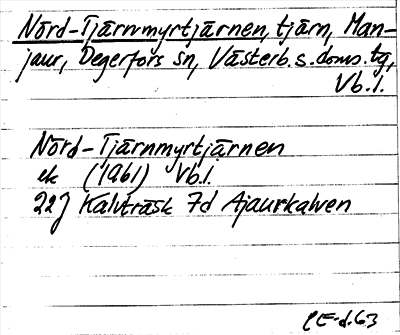 Nörd-Tjärnmyrtjärnen, tjärn, Man-
jaur, Degerfors sn, Västerb. s. doms. tg,
Vb.l.
Nörd-Tjärnmyrtjärnen
ek (1961) Vb.l.
22J Kalvträsk 7d Ajaurkalven